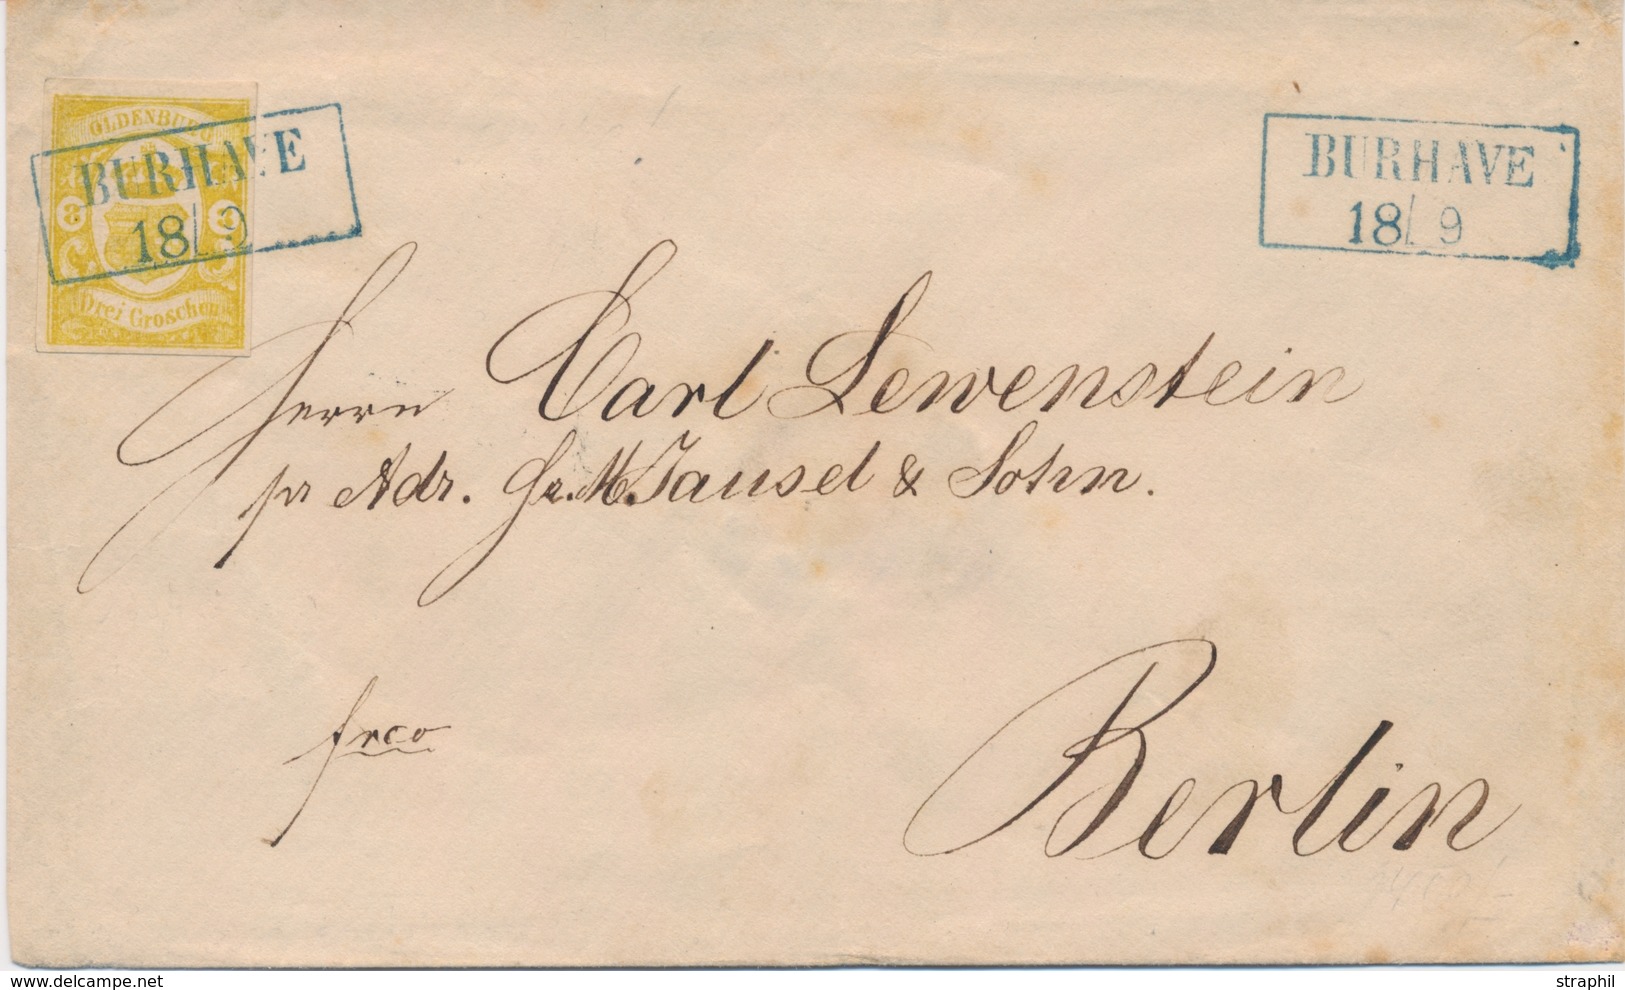 OLDENBURG
3 3
Drei Groschen
BURHAVE
18/9
BURHAVE
18/9
Herrn Carl Lewenstein
pr Adr. Hr. M. Jausel & Sohn.
frco
Berlin
delcampe.net
straphil